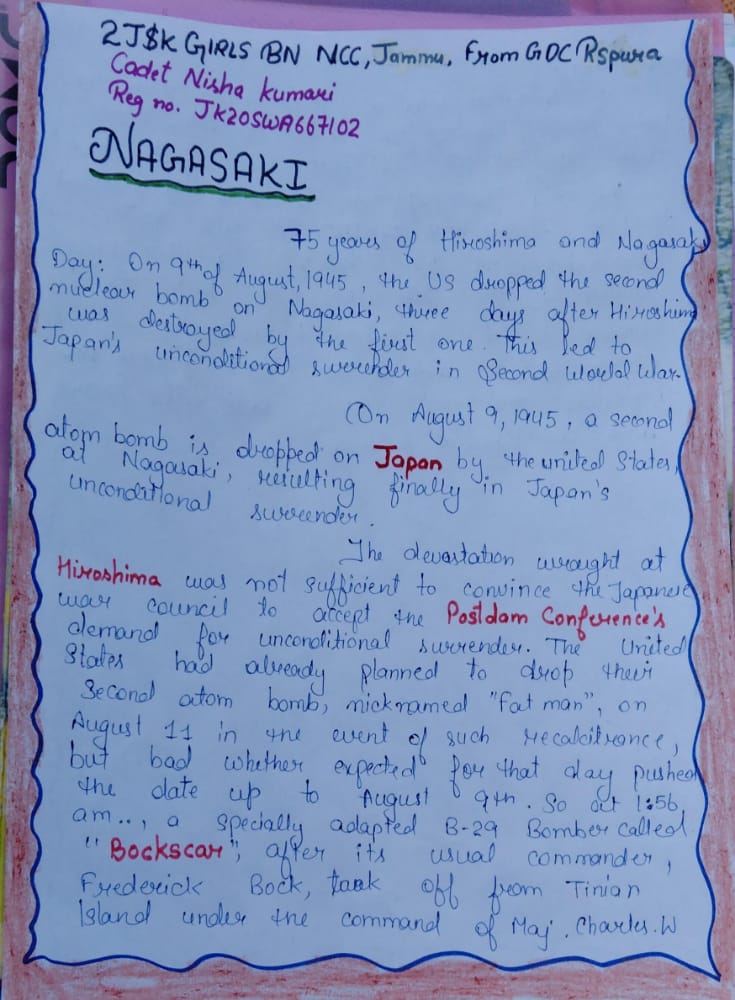 2J&K GIRLS BN NCC, Jammu, From GDC Rspura
Cadet Nisha kumari
Reg no. JK20SWA667102
NAGASAKI
75 years of Hiroshima and Nagasaki
Day: On 9th of August, 1945, the US dropped the second
nuclear bomb on Nagasaki, three days after Hiroshima
was destroyed by the first one. This led to
Japan's unconditional surrender in Second World War.
On August 9, 1945, a second
atom bomb is dropped on Japan by the united States,
at Nagasaki, resulting finally in Japan's
unconditional surrender.
The devastation wrought at
Hiroshima was not sufficient to convince the Japanese
war council to accept the Postdam Conference's
demand for unconditional surrender. The United
States had already planned to drop their
Second atom bomb, nicknamed "Fat man", on
August 11 in the event of such recalcitrance,
but bad whether expected for that day pushed
the date up to August 9th. So at 1:56
am.., a specially adapted B-29 Bomber called
"Bockscar", after its usual commander,
Frederick Bock, took off from Tinian
Island under the command of Maj. Charles.W